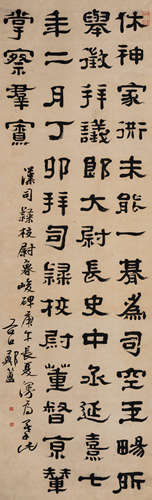 休神家衖未能一朞爲司空王暢所
舉徵拜議郎大尉長史中丞延熹七
年二月丁卯拜司隸校尉董督京輦
掌察羣寮
漢司隸校尉魯峻碑庚午長夏
谷口鄭簠